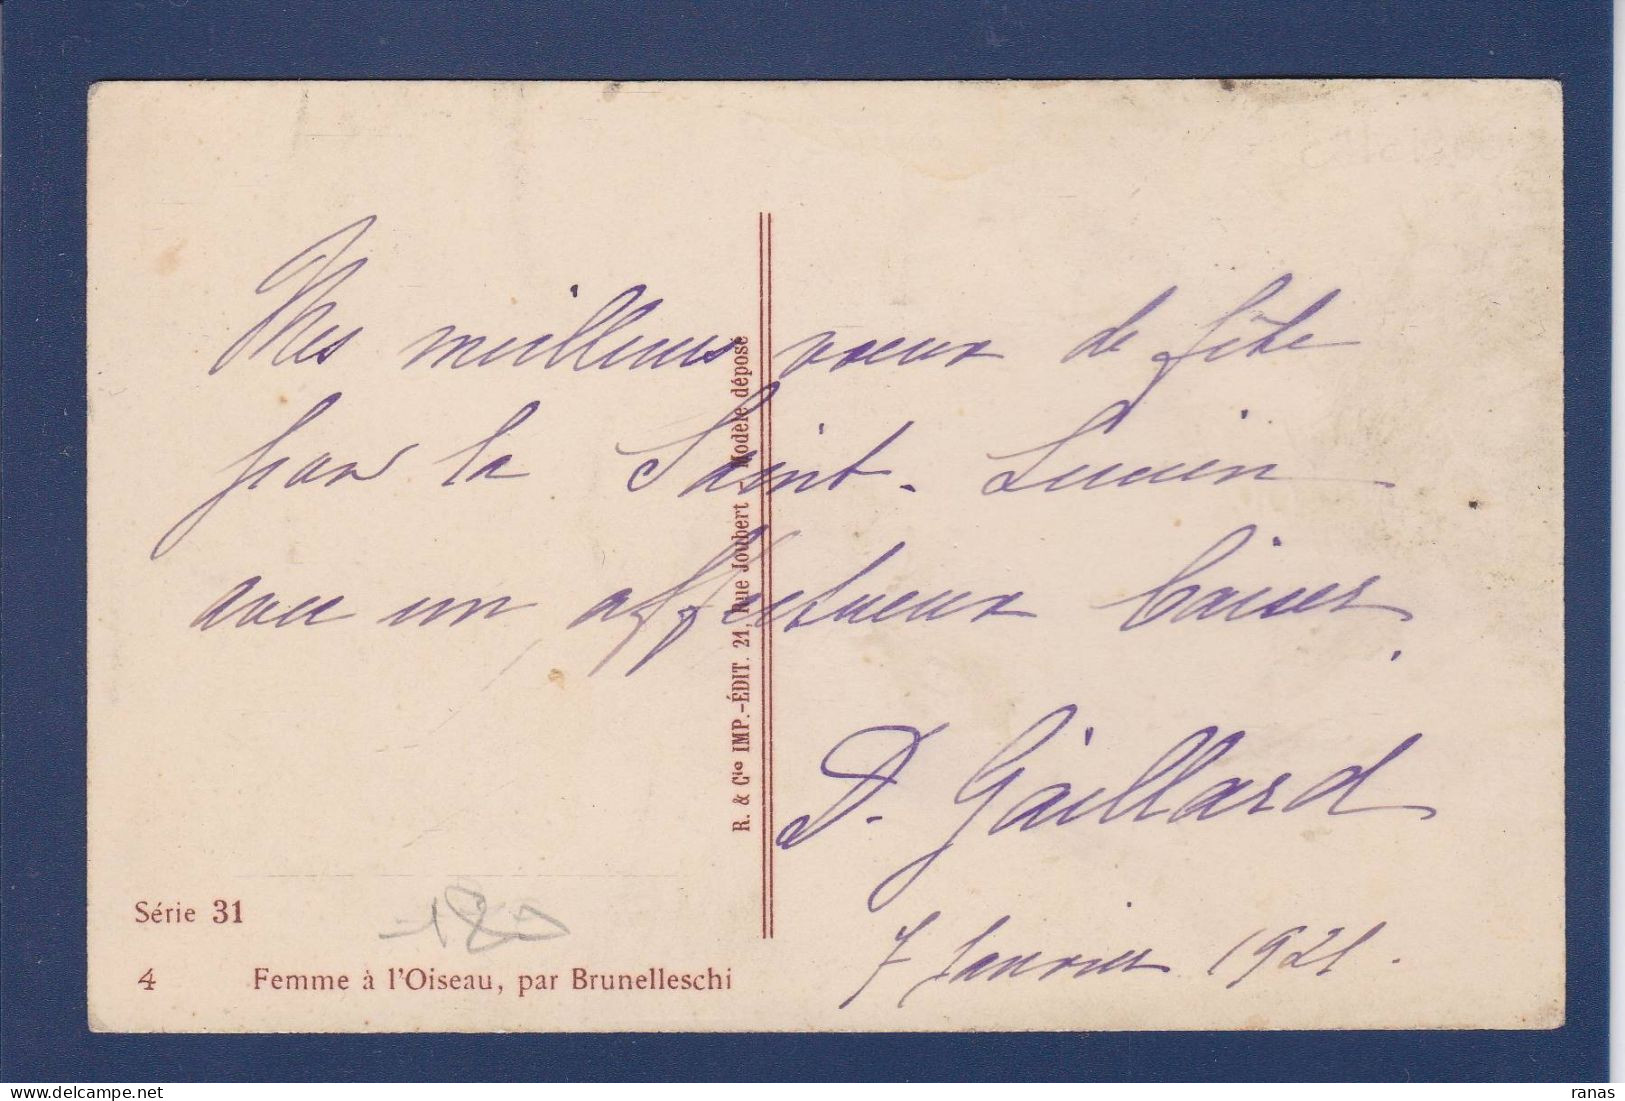 Mes meilleurs vœux de fête
pour la Saint-Lucien
avec un affectueux baiser.
D. Gaillard
7 Janvier 1921.
R. & Cie IMP.-ÉDIT. 21, Rue Joubert - Modèle déposé
Série 31
180
4 Femme à l'Oiseau, par Brunelleschi
ranas